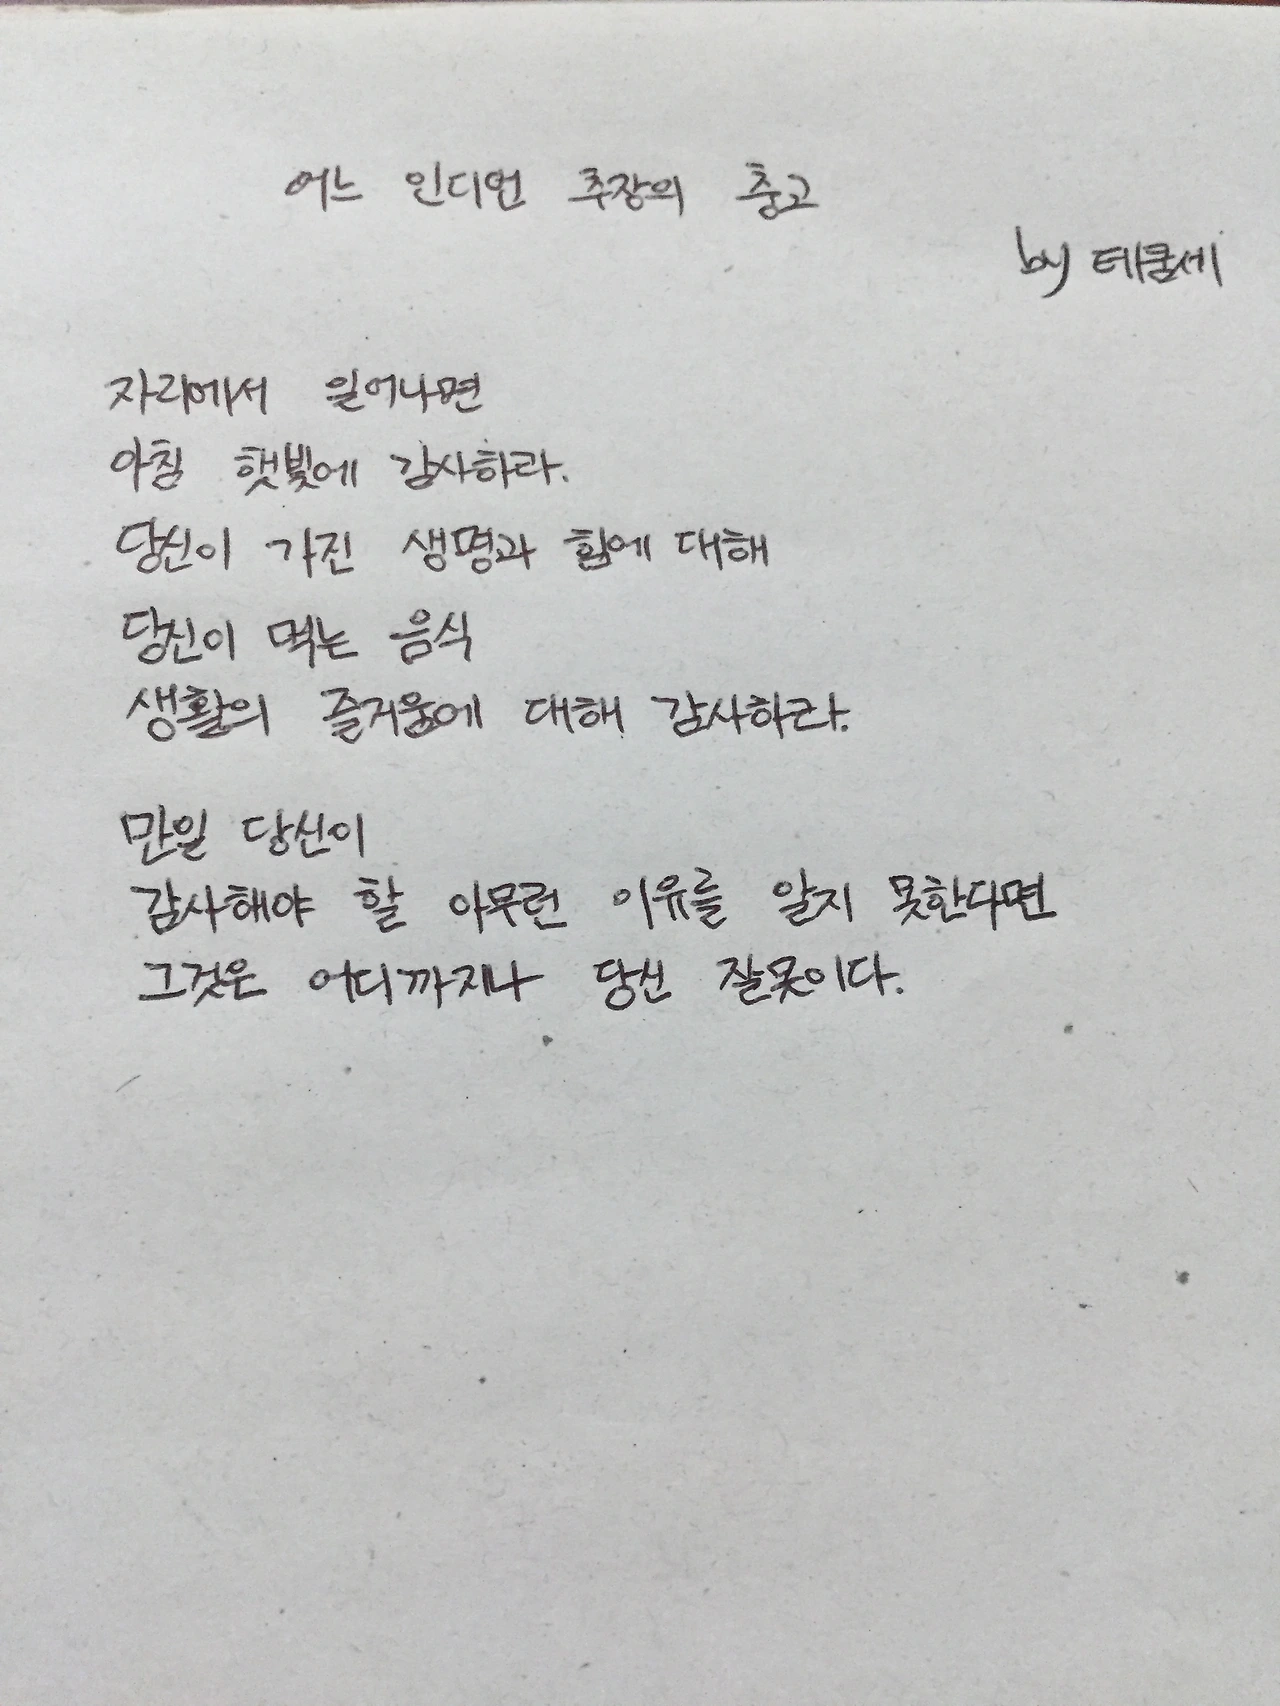 어느 인디언 추장의 충고
by 테쿰세
자리에서 일어나면
아침 햇빛에 감사하라.
당신이 가진 생명과 힘에 대해
당신이 먹는 음식
생활의 즐거움에 대해 감사하라.
만일 당신이
감사해야 할 아무런 이유를 알지 못한다면
그것은 어디까지나 당신 잘못이다.